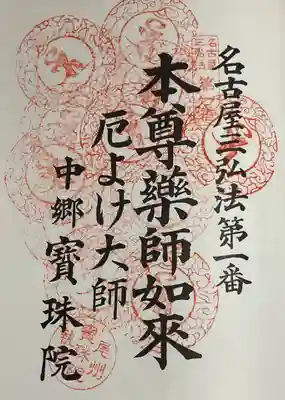 名古屋三弘法第一番
本尊藥師如來
厄よけ大師
中郷 寶珠院